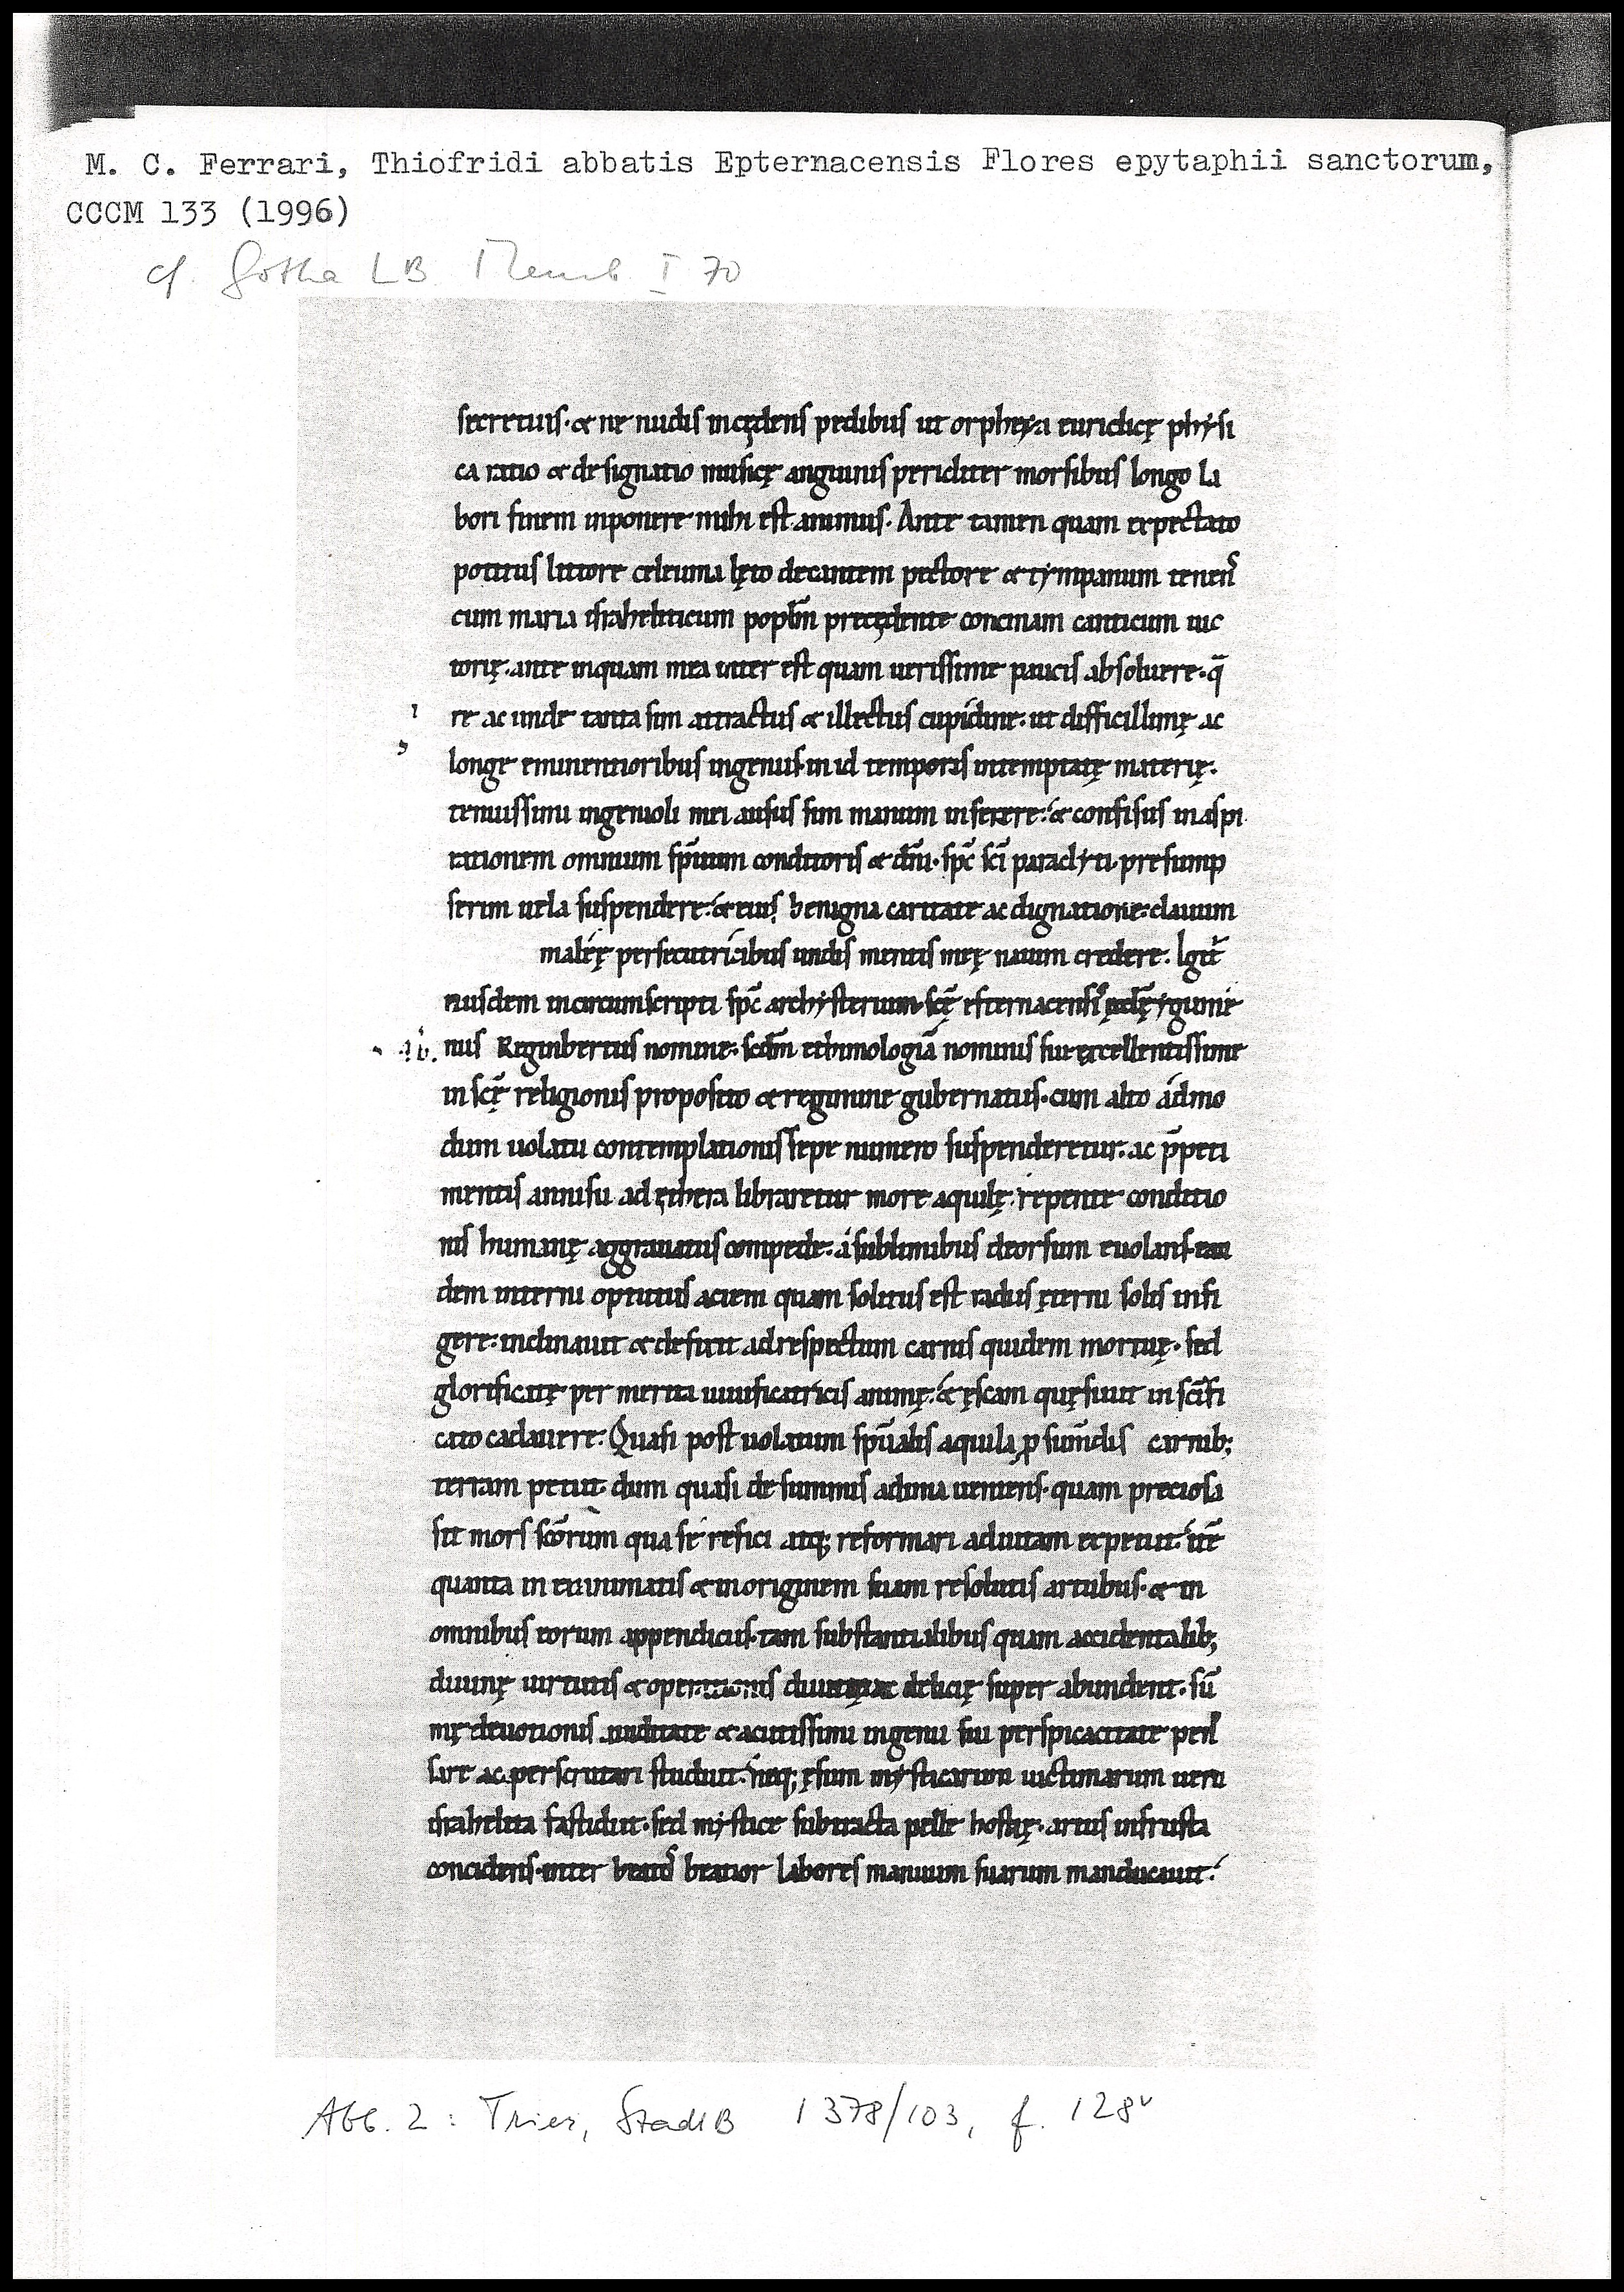 M. C. Ferrari, Thiofridi abbatis Epternacensis Flores epytaphii sanctorum,
CCCM 133 (1996)
cf. Gotha LB Memb. I 70
secretuis· & ne nudis incędens pedibus ut orpheya euridicę physi
ca ratio & designatio musicę anguinis periclitter morsibus longo la
bori finem inponere mihi est animus. Ante tamen quam expectato
potitus littore celeuma lęto decantem pectore & tympanum tenen̄
cum maria israheliticum popl̄m precędente concinam canticum uic
torię· ante inquam mea inter est quam uerissime paucis absoluere· q̄
re ac unde tanta sim attractus & illectus cupidine· ut difficillimę ac
longe eminentioribus ingeniis in id temporis intemptatę materię·
tenuissimi ingenioli mei ausus sim manum inserere: & confisus in aspi
rationem omnium sp̄ituum conditoris & dn̄i· sp̄c sc̄i paraclyti presump
serim uela suspendere: & eius benigna caritate ac dignatione· clauum
malię persecutricibus undis mentis meę nauim credere. Igit̄
eiusdem incircumscripti sp̄c archysterium· sc̄ę efternacensis ęcclę ygume
nus Reginbertus nomine· scd̄m ethimologiā nominis sui excellentissime
in sc̄ę religionis proposito & regimine gubernatus· cum alto ádmo
dum uolatu contemplationis sepe numero suspenderetur· ac p̄peti
mentis annisu ad ęthera libraretur more aquilę· repente conditio
nis humanę aggrauatus compede· á sublimibus deorsum euolans· ean
dem interni optutus aciem quam solitus est radiis ęterni solis infi
gere· inclinauit & defixit ad respectum carnis quidem mortuę· sed
glorificatę per merita uiuificatricis animę: & ęscam quęsiuit in sc̄ifi
cato cadauere: Quasi post uolatum sp̄ualis aquila p sum̄dis carnib;
terram petiit· dum quasi de summis ad ima ueniens· quam preciosa
sit mors sc̄orum qua se refici atq; reformari ad uitam expetiit· it̄e
quanta in exinimatis & in originem suam resolutis artubus· & in
omnibus eorum appendiciis· tam substantialibus quam accidentalib;
diuinę uirtutis & operationis delicię super abundent· sū
mę deuotionis & acutissimi ingenii sui perspicacitate pen
sare ac perscrutari studuit· neq; ęsum mysticarum uictimarum ueru
israhelita fastidiit· sed mystice subtracta pelle hostię· artus in frusta
concidens· inter beatos beatior labores manuum suarum manducauit:
Abb. 2: Trier, StadtB 1378/103, f. 128v